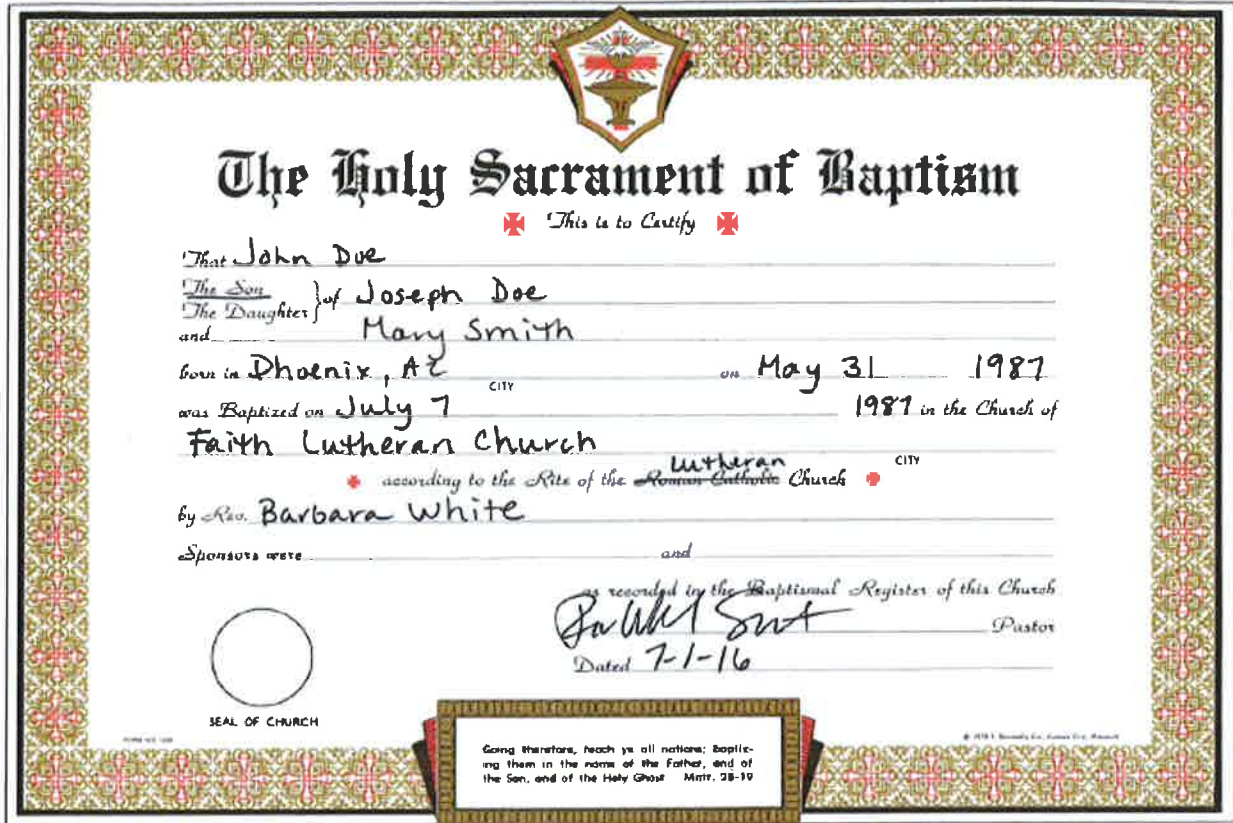 The Holy Sacrament of Baptism
This is to Certify
That John Doe
The Son
The Daughter } of Joseph Doe
and Mary Smith
born in Phoenix, AZ on May 31 1987
CITY
was Baptized on July 7 1987 in the Church of
Faith Lutheran Church
CITY
according to the Rite of the Roman Catholic Lutheran Church
by Rev. Barbara White
Sponsors were and
as recorded in the Baptismal Register of this Church
Pastor
Dated 7-1-16
SEAL OF CHURCH
Going therefore, teach ye all nations; baptiz-
ing them in the name of the Father, and of
the Son, and of the Holy Ghost Matt. 28-19